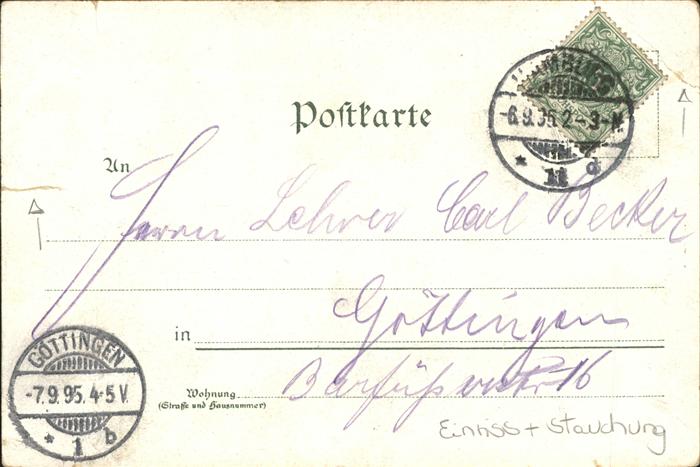 Postkarte
HAMBURG
-6.9.95.2-3-N.
* 11 d
An
Herrn Lehrer Carl Becker
Göttingen
in
GÖTTINGEN
-7.9.95.4-5V.
* 1 b
Wohnung
(Straße und Hausnummer)
Barfüßerstr. 16
Einriss + Stauchung